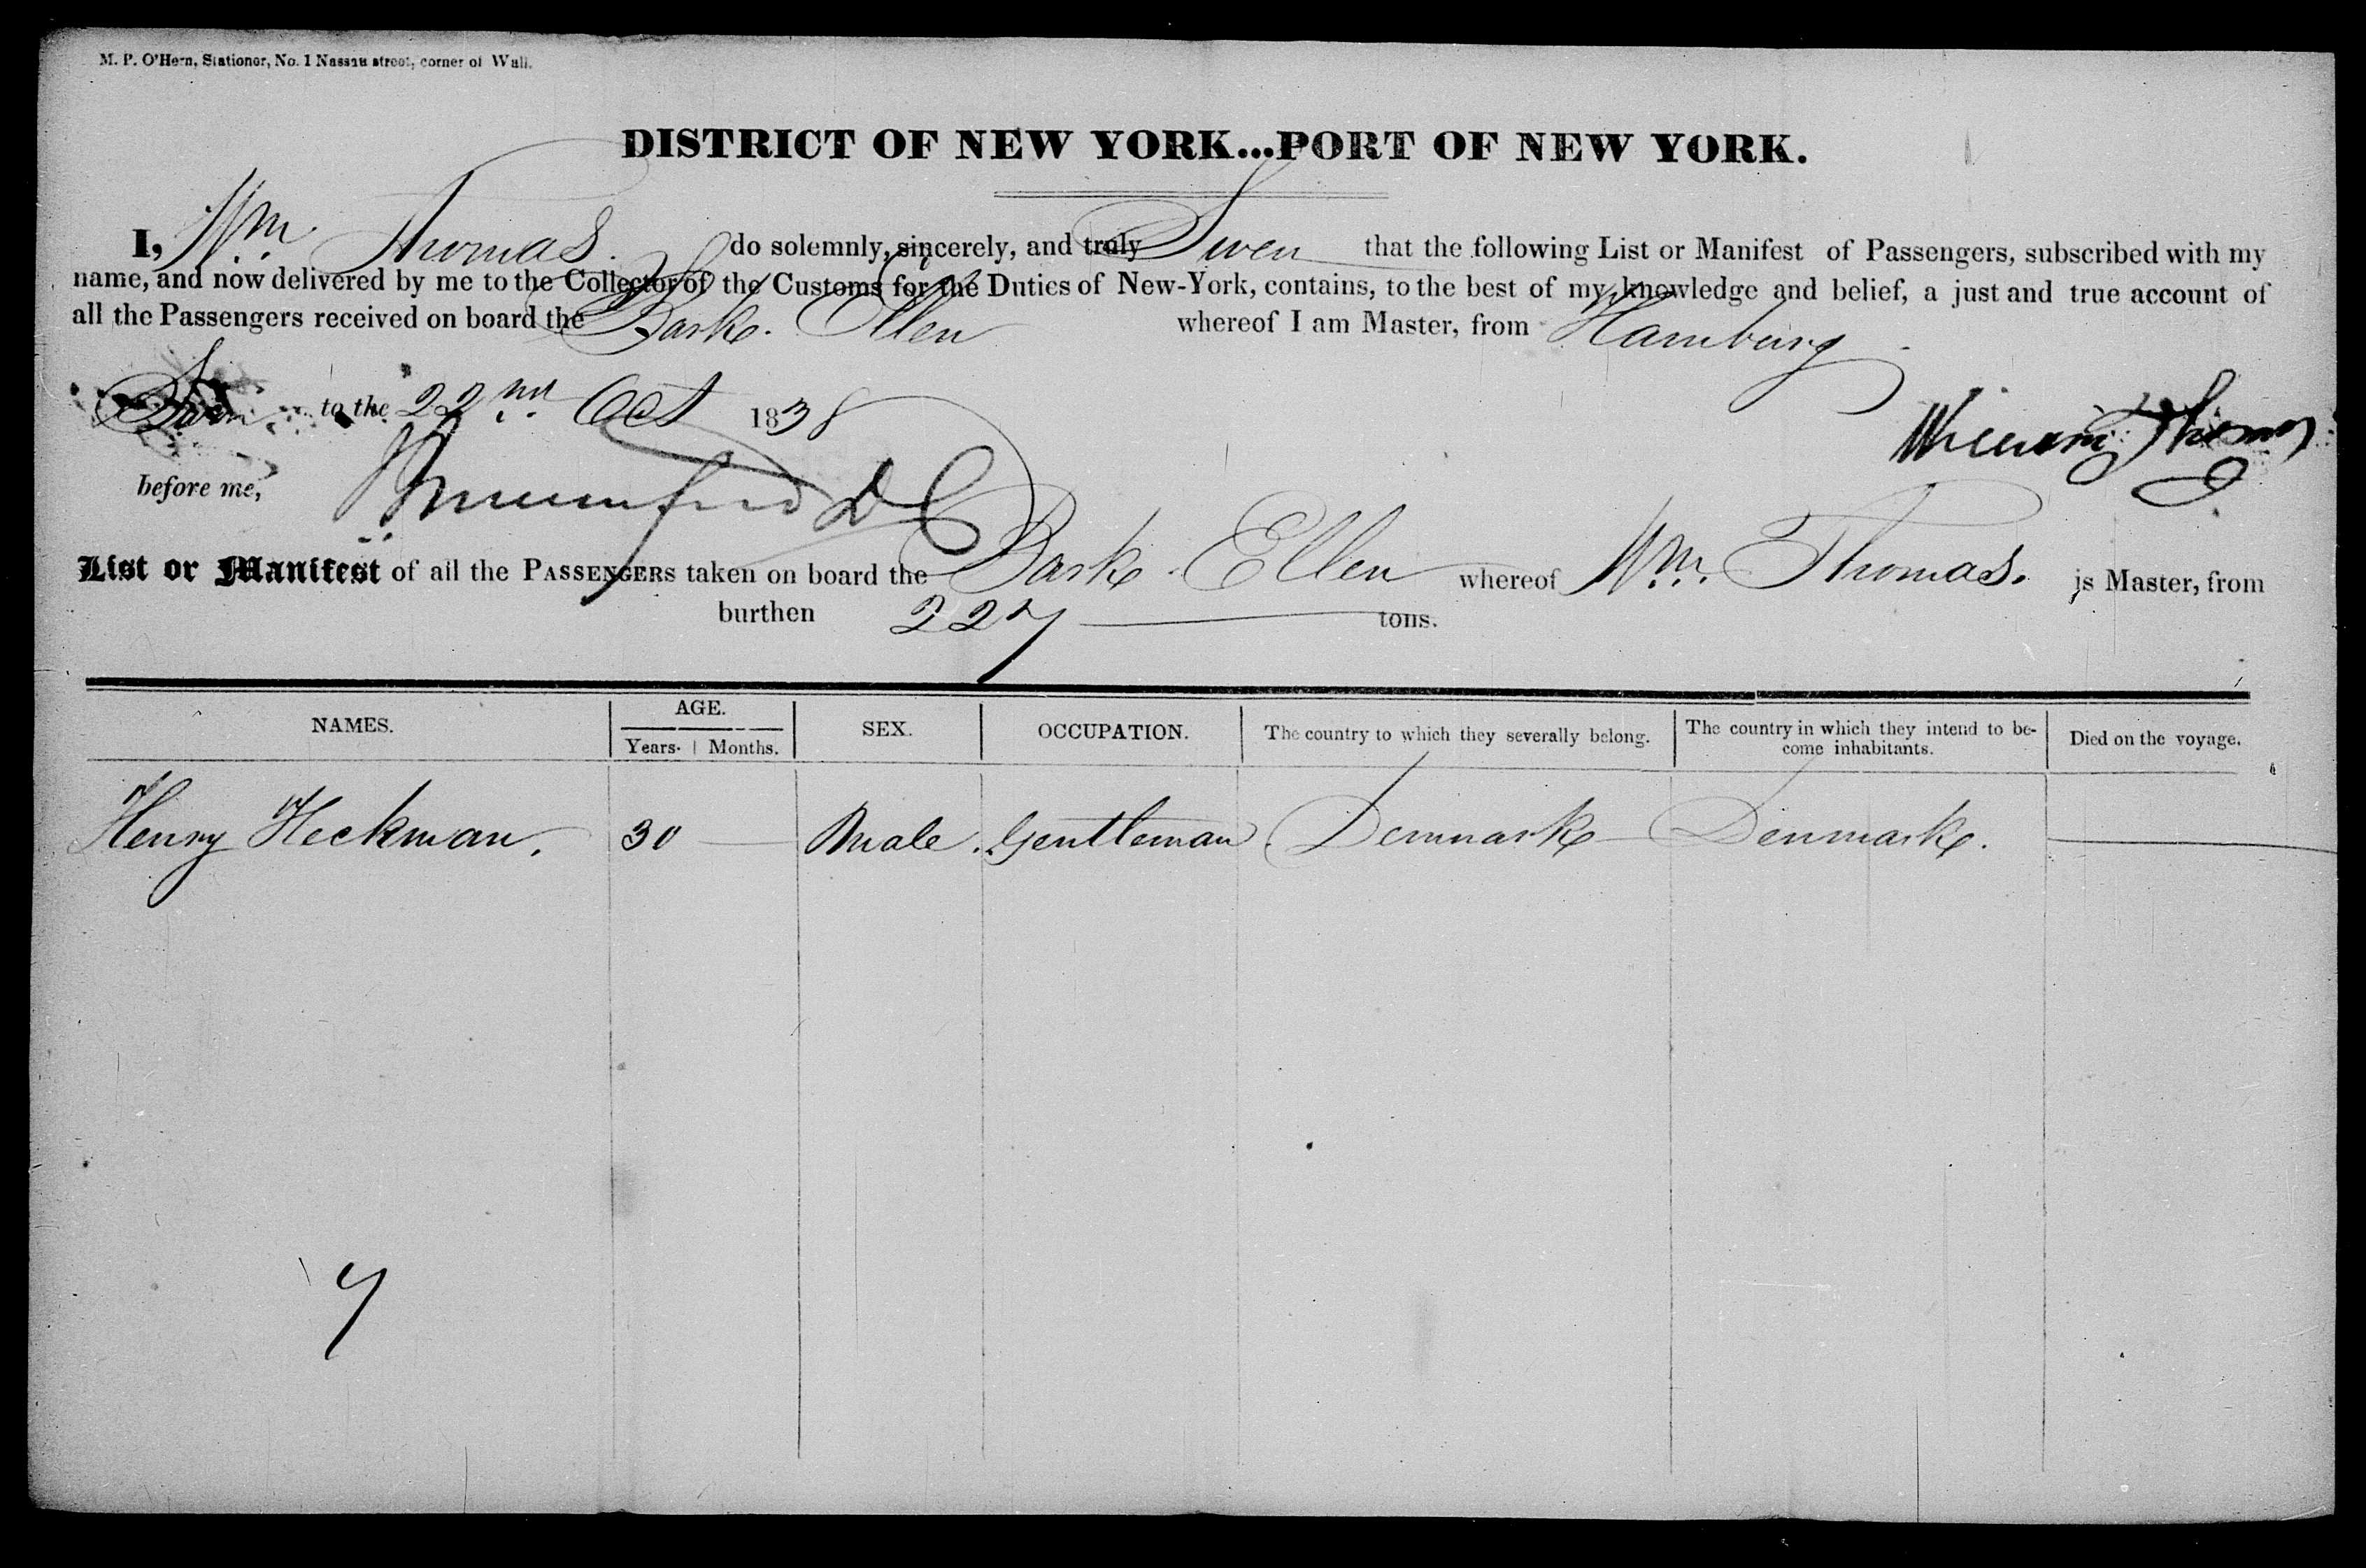 M. P. O'Hern, Stationer, No. 1 Nassau street, corner of Wall.
DISTRICT OF NEW YORK...PORT OF NEW YORK.
I, Wm. Thomas. do solemnly, sincerely, and truly Swen that the following List or Manifest of Passengers, subscribed with my
name, and now delivered by me to the Collector of the Customs for the Duties of New-York, contains, to the best of my knowledge and belief, a just and true account of
all the Passengers received on board the Barke. Ellen whereof I am Master, from Hamburg
to the 22nd Oct 1838
William Thomas
before me,
List or Manifest of all the PASSENGERS taken on board the Barke Ellen whereof Wm. Thomas. is Master, from
burthen 227 tons.
NAMES. AGE. SEX. OCCUPATION. The country to which they severally belong. The country in which they intend to be-come inhabitants. Died on the voyage.
Years. Months.
Henry Heckman. 30 — Male. Gentleman. Denmarke — Denmarke. —
7